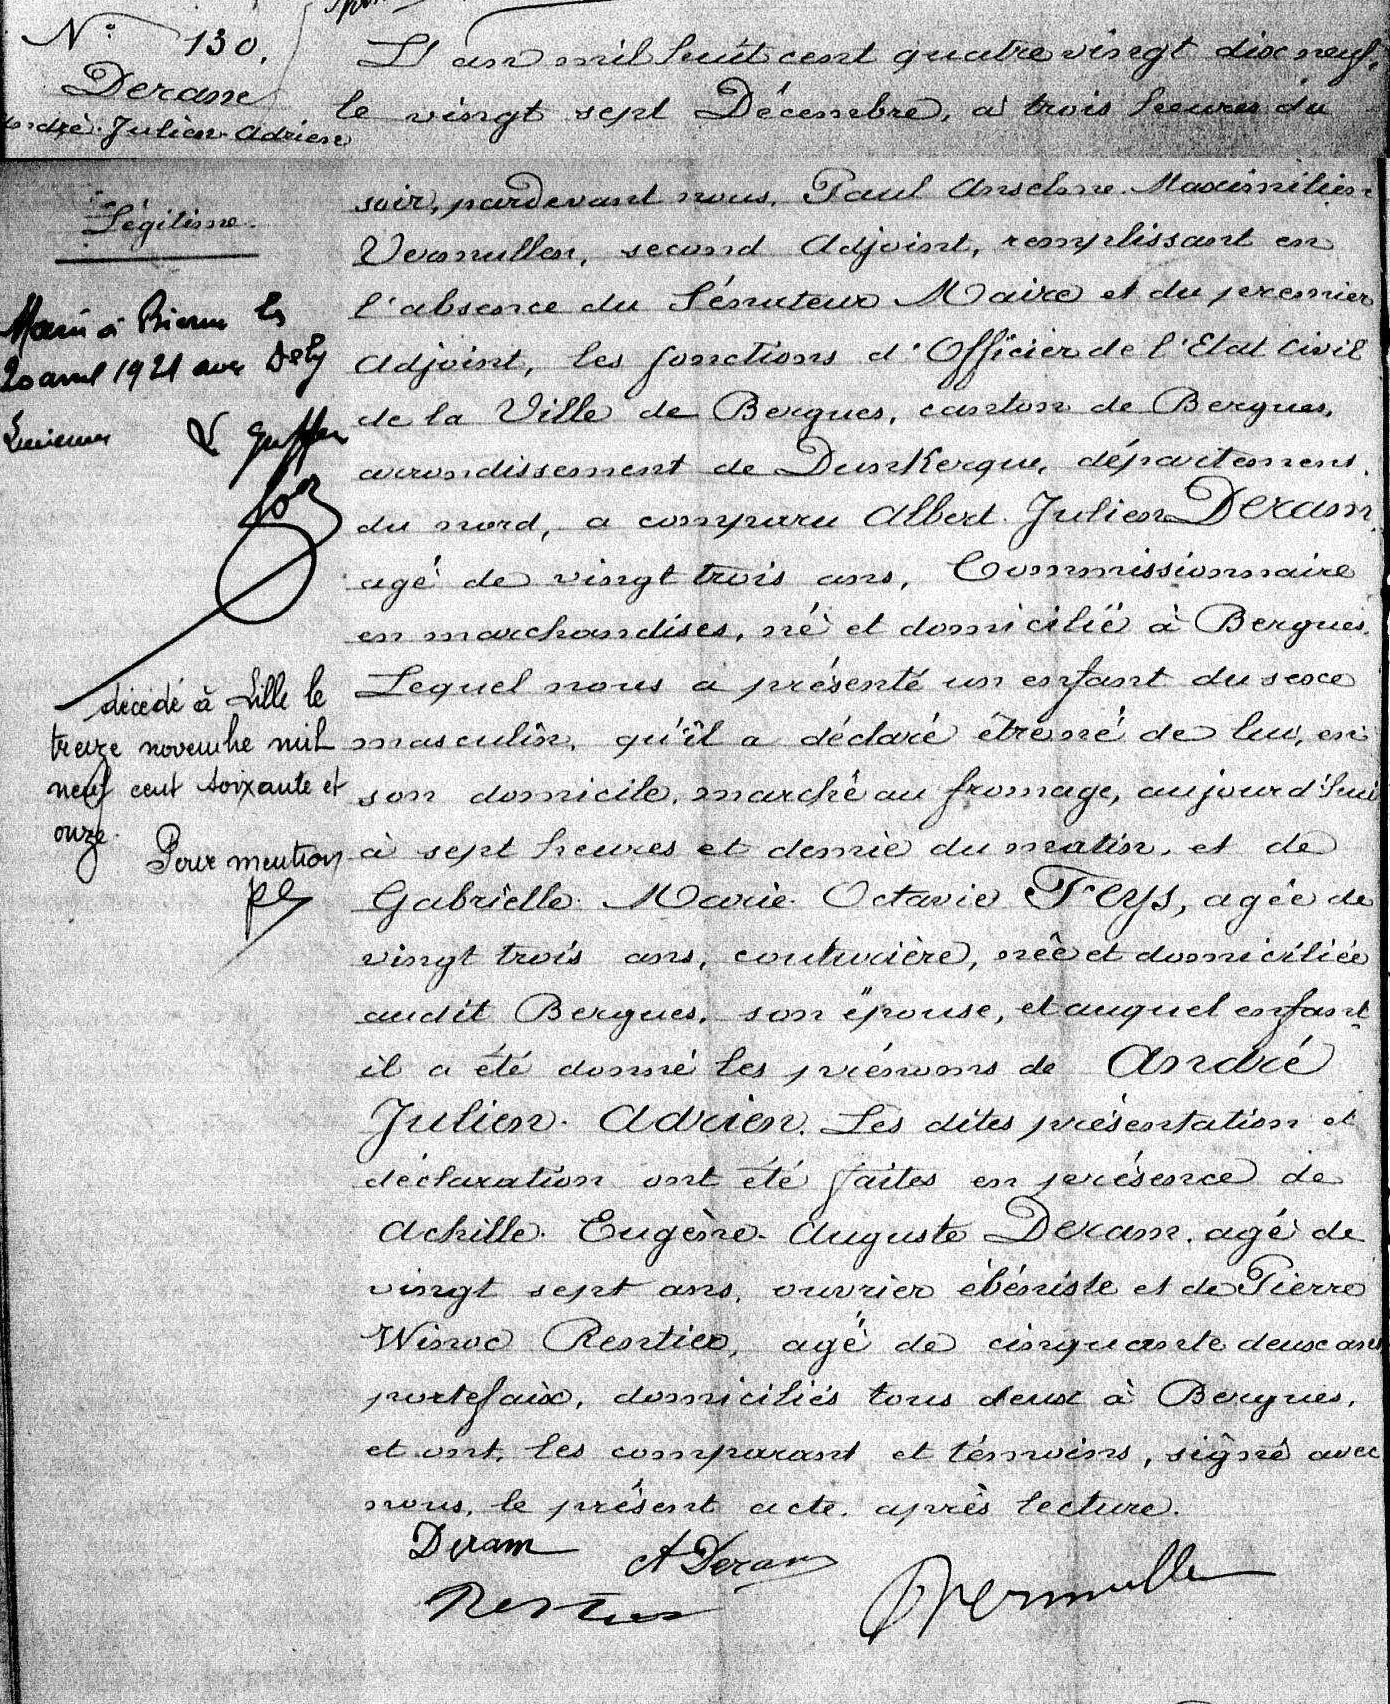 N° 130.
Deram
André Julien Adrien
Légitime.
Marié à Bierne le
20 avril 1921 avec Dely
Lucienne Le Greffier
décédé à Lille le
treize novembre mil
neuf cent soixante et
onze.
Pour mention
L'an mil huit cent quatre vingt dix neuf,
le vingt sept Décembre, à trois heures du
soir, pardevant nous, Paul Anselme Maximilien
Vermullen, second Adjoint, remplissant en
l'absence du Sénateur Maire et du premier
Adjoint, les fonctions d'Officier de l'Etat Civil
de la Ville de Bergues, canton de Bergues,
arrondissement de Dunkerque, département
du nord, a comparu Albert Julien Deram,
agé de vingt trois ans, Commissionnaire
en marchandises, né et domicilié à Bergues.
Lequel nous a présenté un enfant du sexe
masculin, qu'il a déclaré être né de lui, en
son domicile, marché au fromage, aujourd'hui
à sept heures et demie du matin, et de
Gabrielle Marie Octavie Feys, agée de
vingt trois ans, couturière, née et domiciliée
audit Bergues, son épouse, et auquel enfant
il a été donné les prénoms de André
Julien Adrien. Les dites présentation et
déclaration ont été faites en présence de
Achille Eugène Auguste Deram, agé de
vingt sept ans, ouvrier ébéniste et de Pierre
Winoc Rentier, agé de cinquante deux ans
portefaix, domiciliés tous deux à Bergues,
et ont, les comparant et témoins, signé avec
nous, le présent acte, après lecture.
Deram A Deram